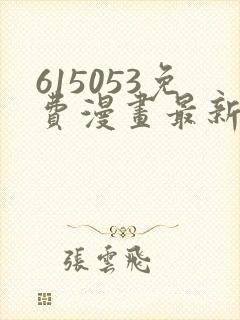 615053免
費漫畫最新
張雲飛